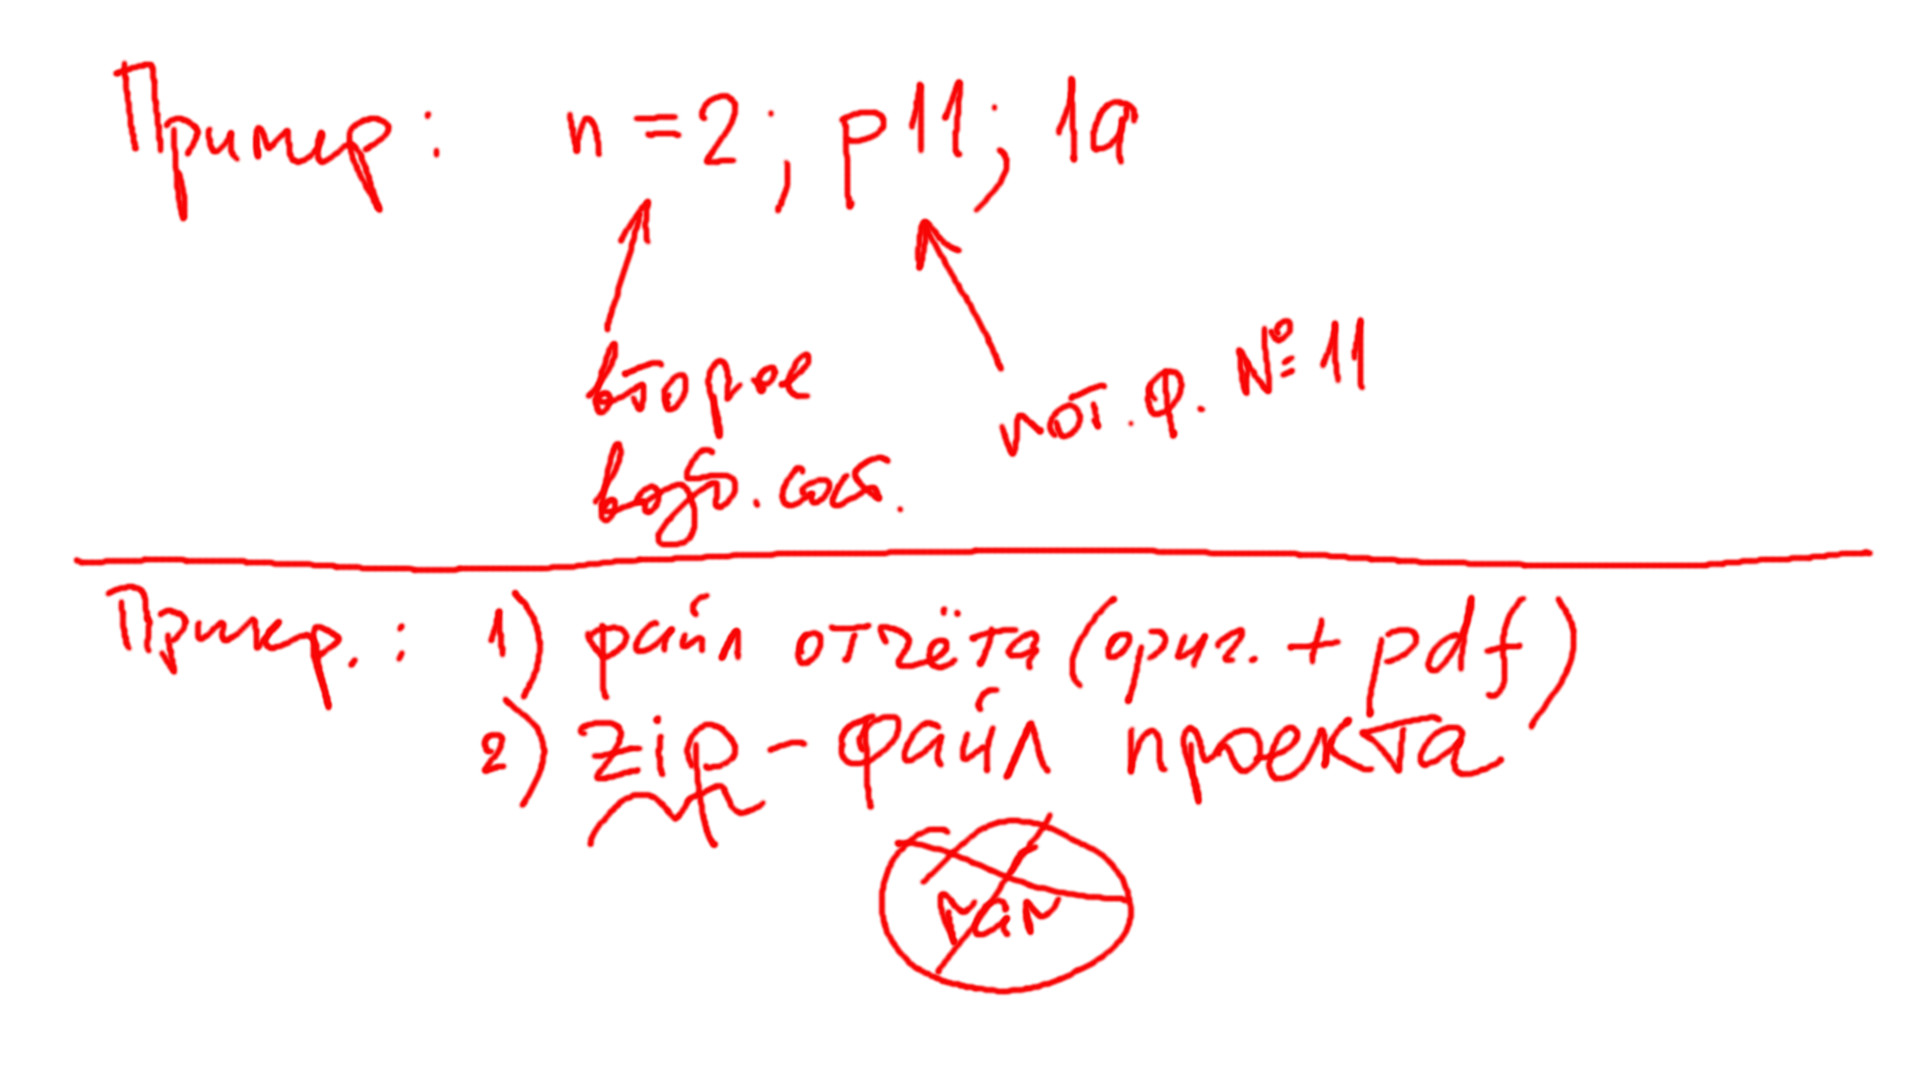 Пример: n = 2; p11; 1a
второе
возб. сост.
пот. ф. № 11
Пример.: 1) файл отчёта (ориг. + pdf)
2) zip - файл проекта
rar